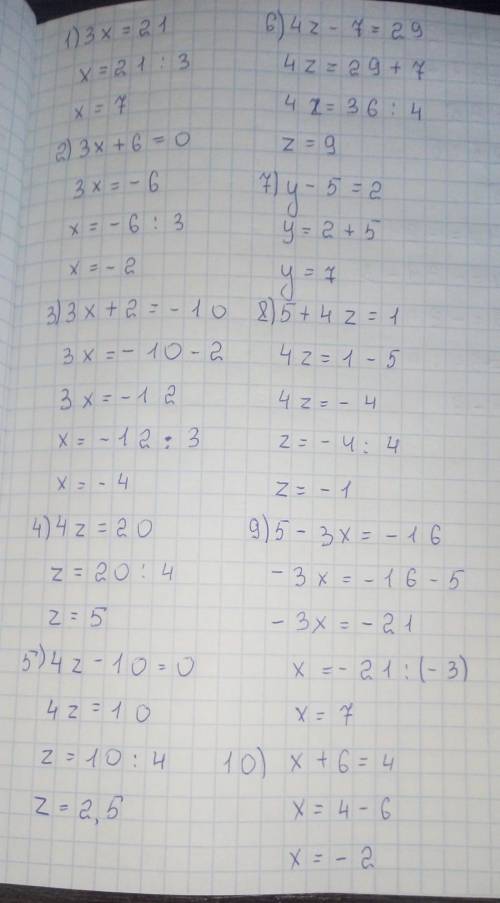 1) 3x = 21
x = 21 : 3
x = 7
2) 3x + 6 = 0
3x = - 6
x = - 6 : 3
x = - 2
3) 3x + 2 = - 10
3x = - 10 - 2
3x = - 12
x = - 12 : 3
x = - 4
4) 4z = 20
z = 20 : 4
z = 5
5) 4z - 10 = 0
4z = 10
z = 10 : 4
z = 2,5
6) 4z - 7 = 29
4z = 29 + 7
4z = 36 : 4
z = 9
7) y - 5 = 2
y = 2 + 5
y = 7
8) 5 + 4z = 1
4z = 1 - 5
4z = - 4
z = - 4 : 4
z = - 1
9) 5 - 3x = - 16
- 3x = - 16 - 5
- 3x = - 21
x = - 21 : (- 3)
x = 7
10) x + 6 = 4
x = 4 - 6
x = - 2